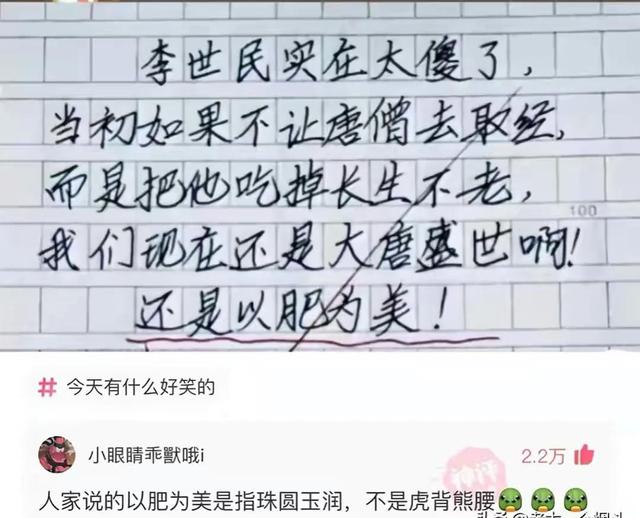 李世民实在太傻了，
当初如果不让唐僧去取经，
而是把他吃掉长生不老，
100
我们现在还是大唐盛世啊！
还是以肥为美！
# 今天有什么好笑的
小眼睛乖獸哦i
神评
2.2万
人家说的以肥为美是指珠圆玉润，不是虎背熊腰